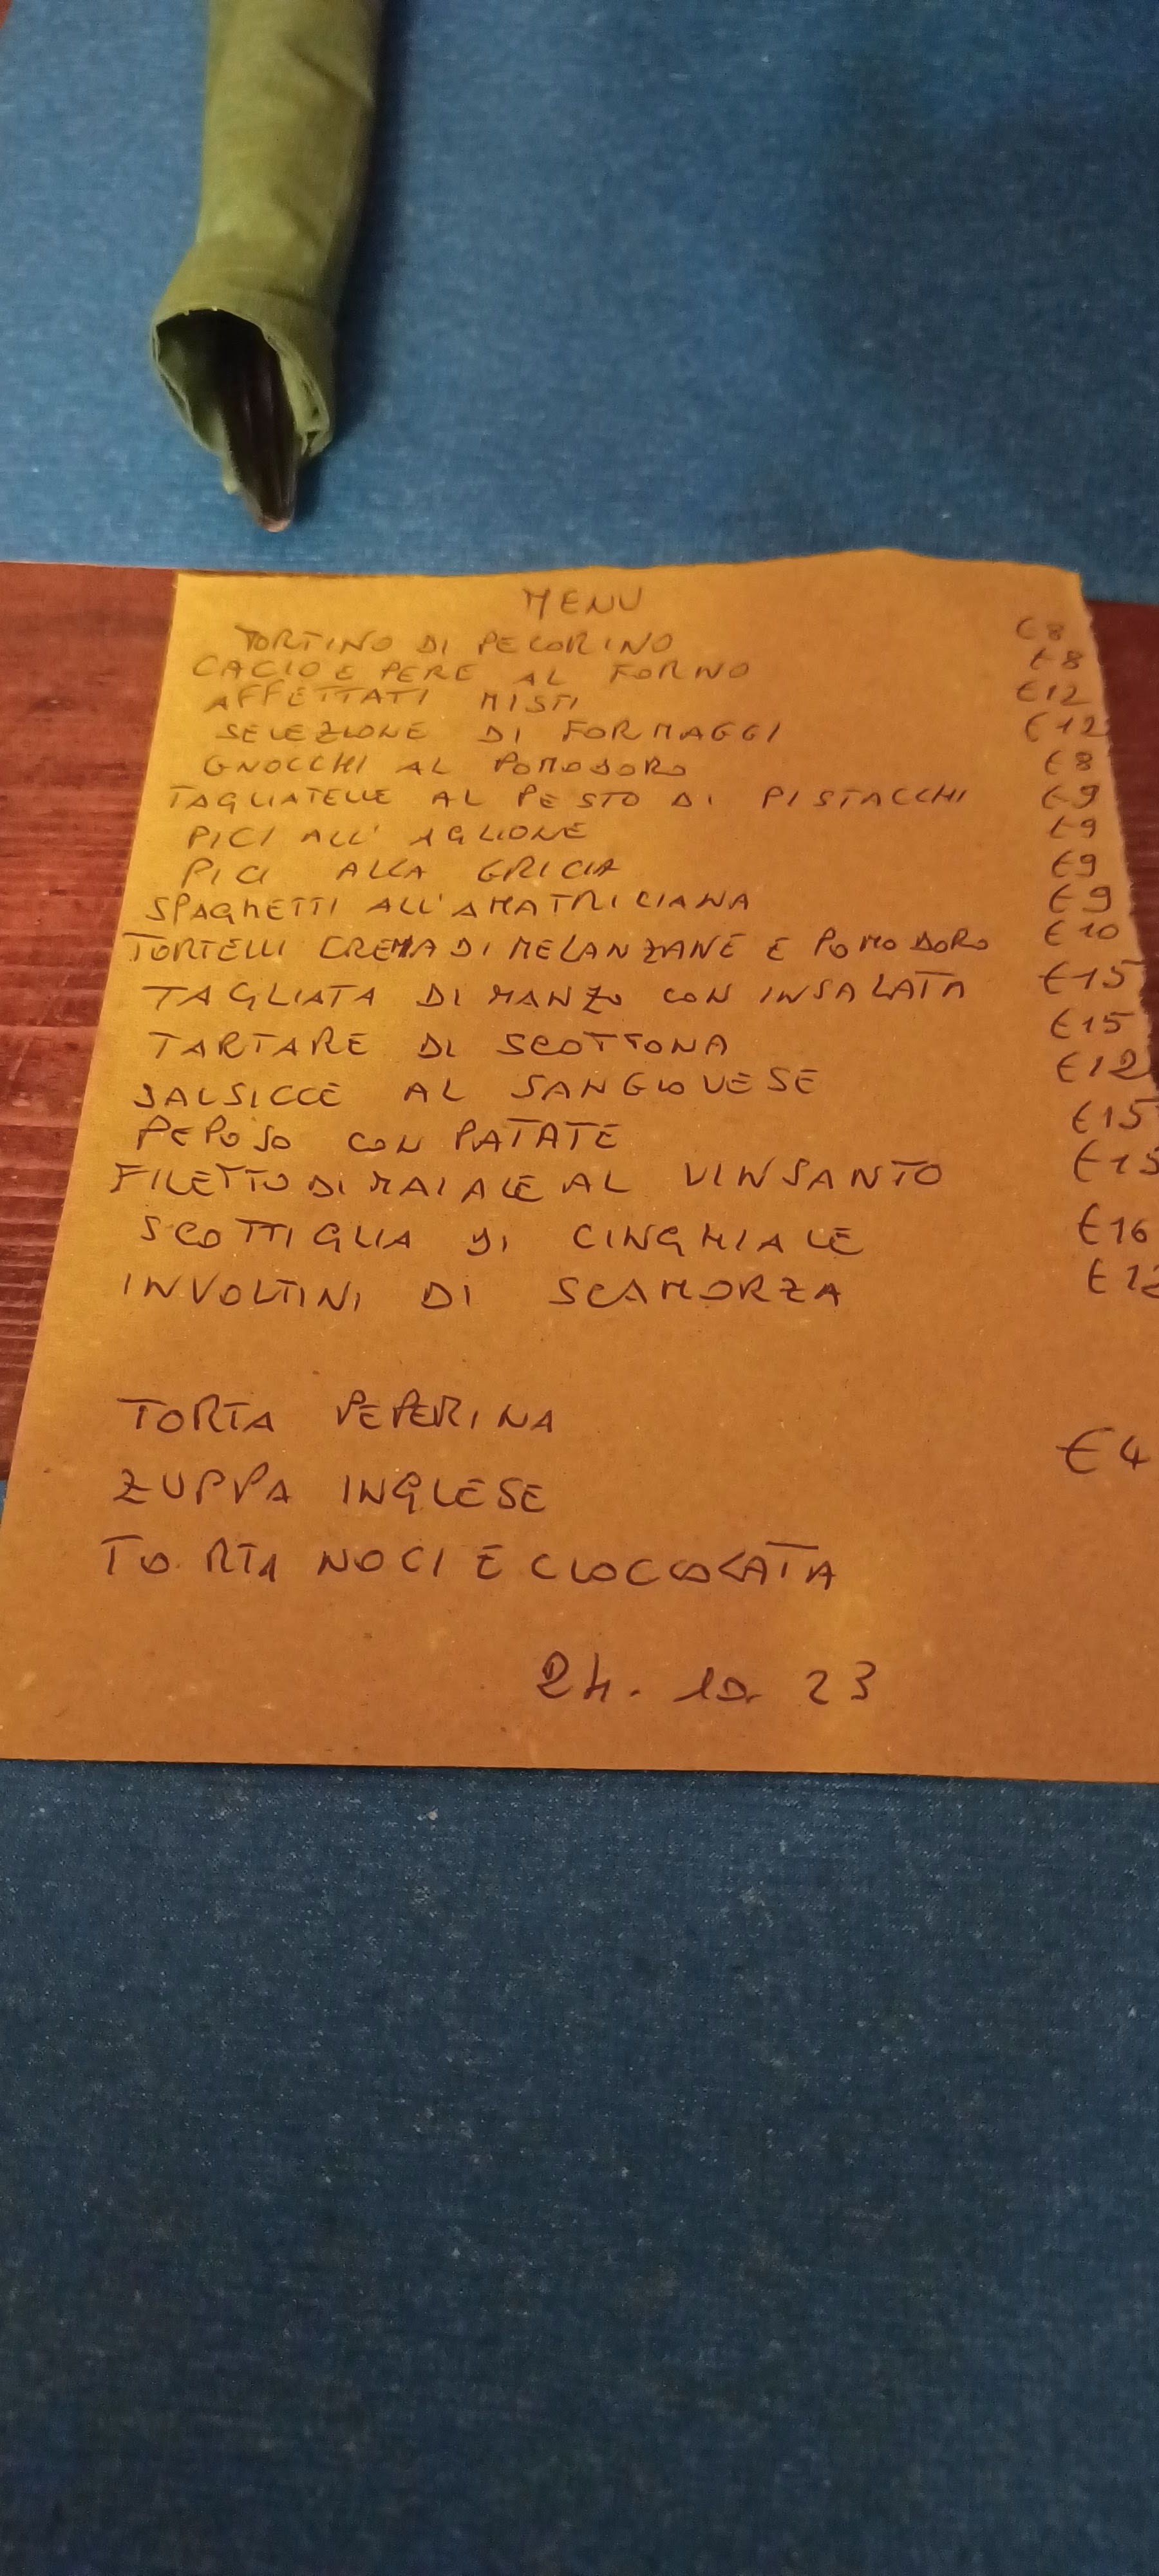 MENU
TORTINO DI PECORINO €8
CACIO E PERE AL FORNO €8
AFFETTATI MISTI €12
SELEZIONE DI FORMAGGI €12
GNOCCHI AL POMODORO €8
TAGLIATELLE AL PESTO DI PISTACCHI €9
PICI ALL'AGLIONE €9
PICI ALLA GRICIA €9
SPAGHETTI ALL'AMATRICIANA €9
TORTELLI CREMA DI MELANZANE E POMODORO €10
TAGLIATA DI MANZO CON INSALATA €15
TARTARE DI SCOTTONA €15
SALSICCE AL SANGIOVESE €12
PEPOSO CON PATATE €15
FILETTO DI MAIALE AL VINSANTO €15
SCOTTIGLIA DI CINGHIALE €16
INVOLTINI DI SCAMORZA €12
TORTA PEPERINA
€4
ZUPPA INGLESE
TORTA NOCI E CIOCCOLATA
24. 10. 23